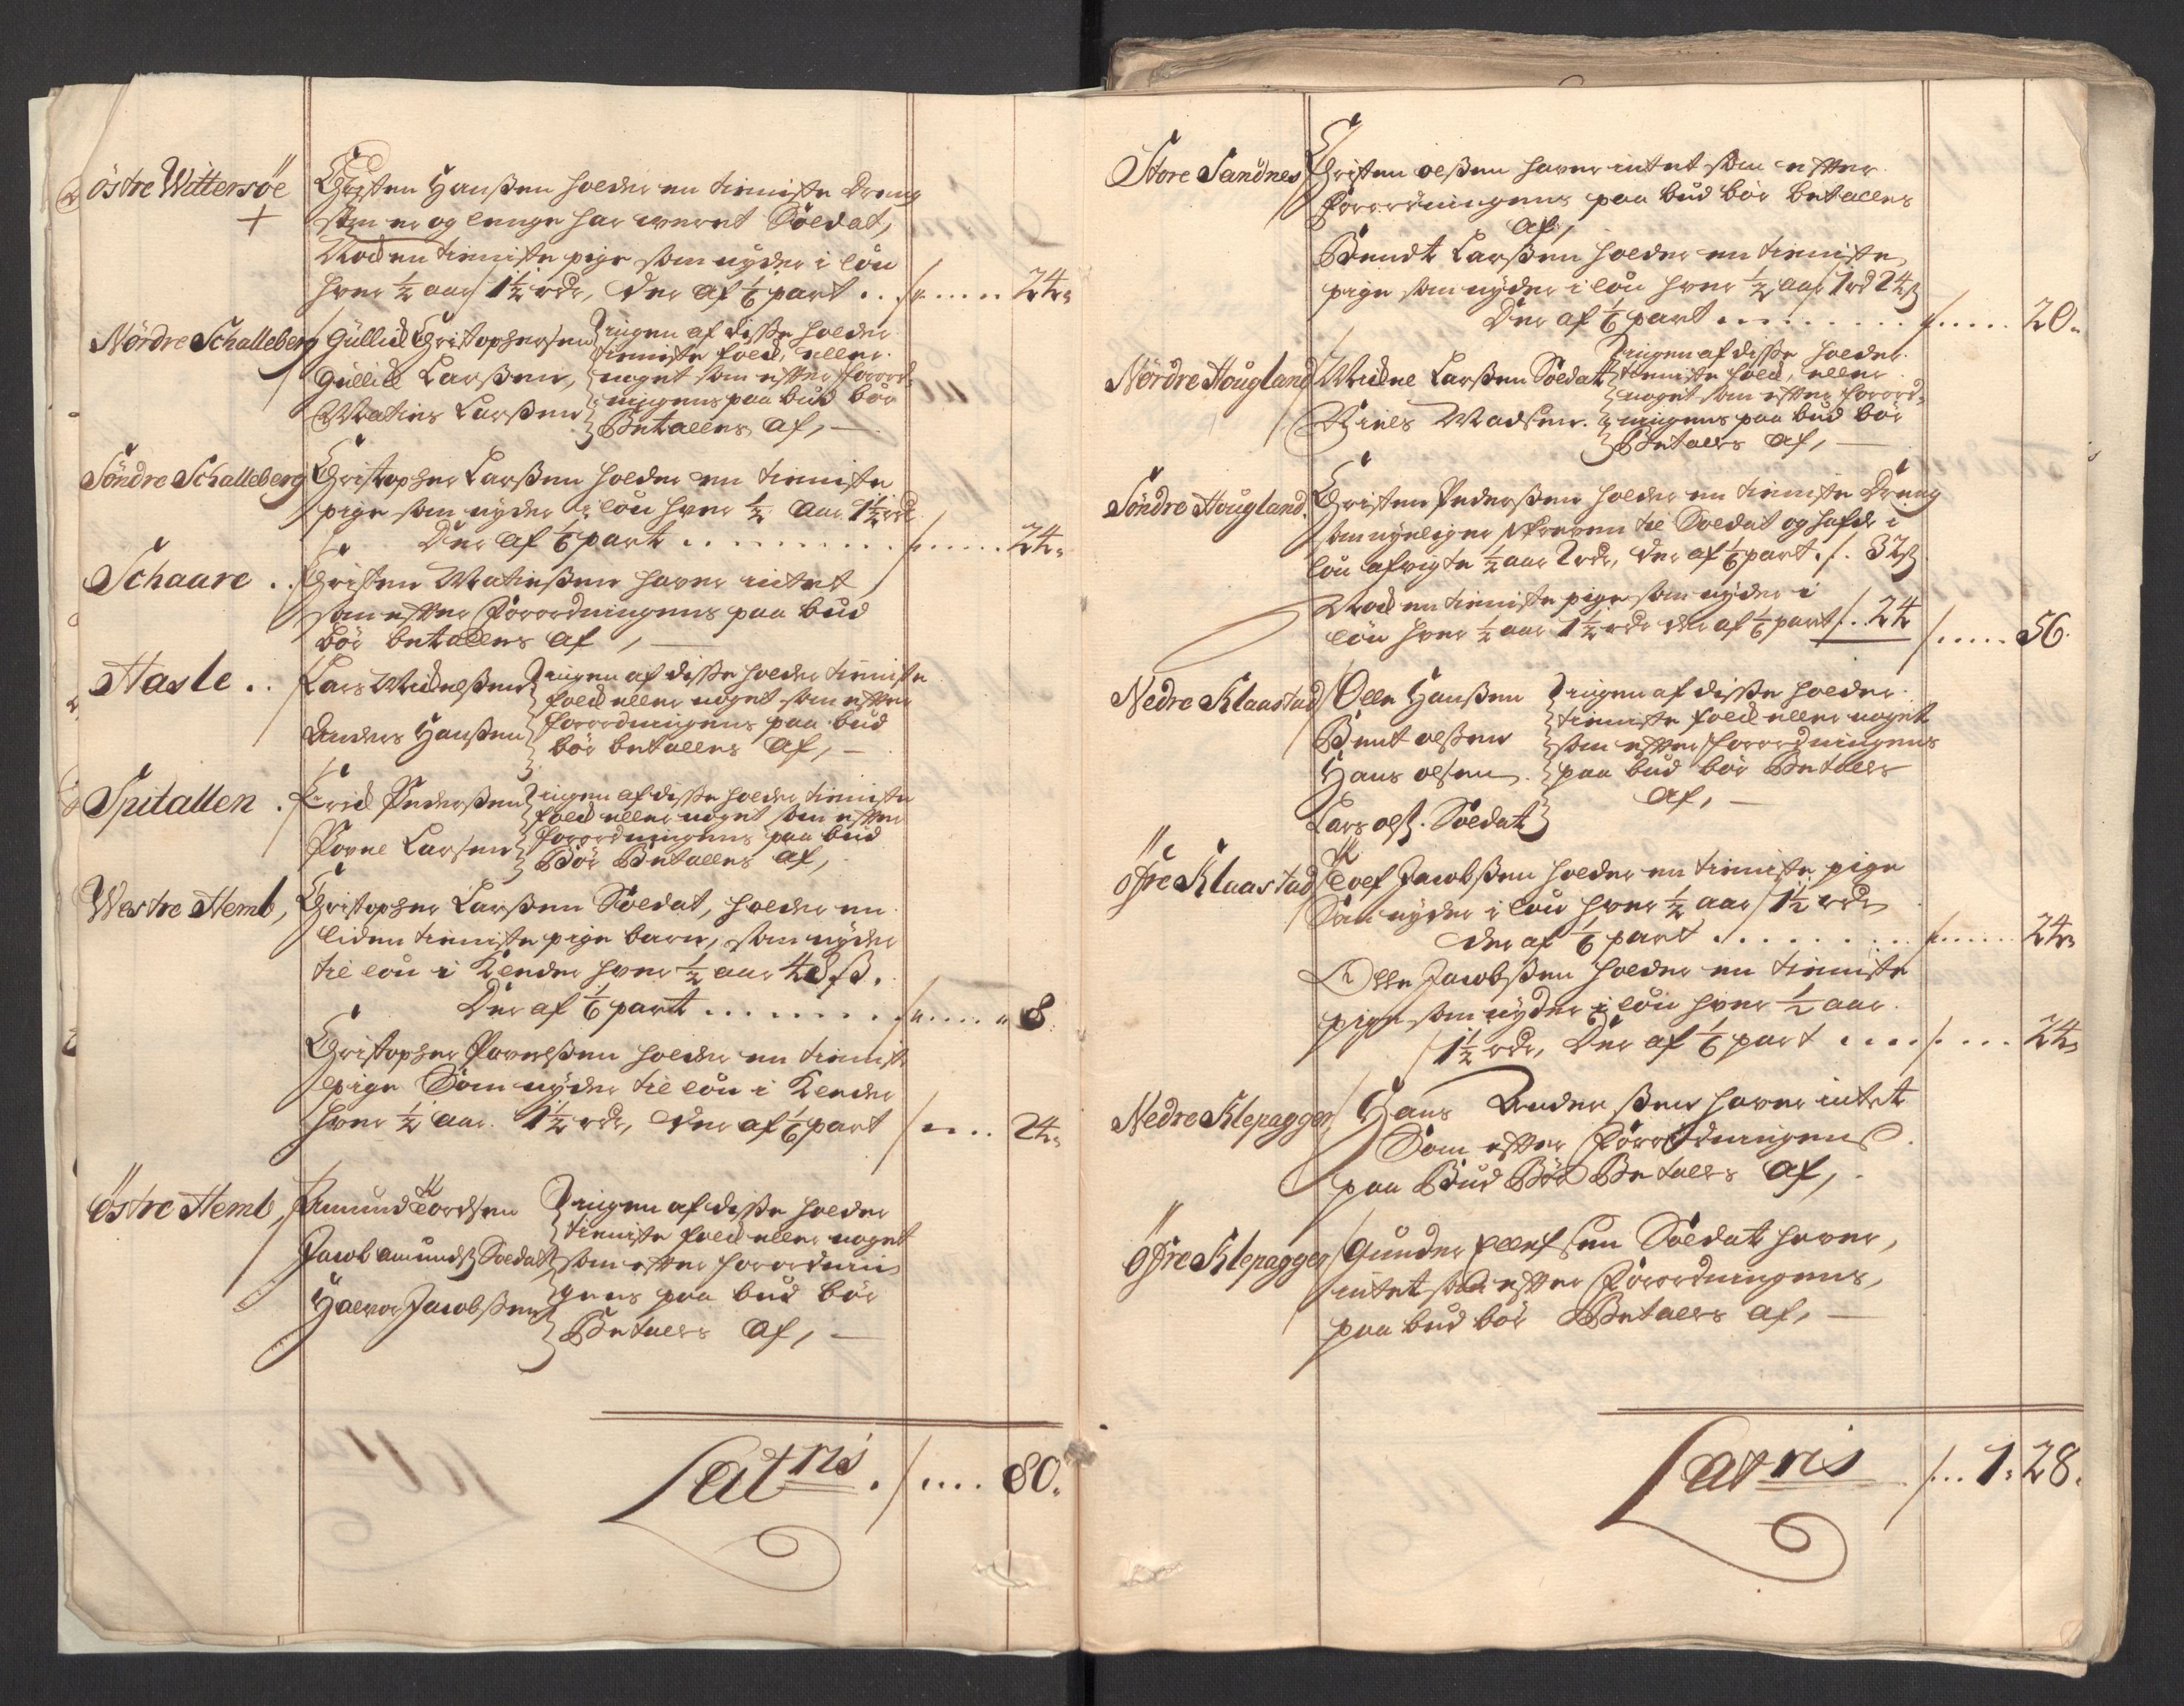 östre Wittersöe
Christen Hanßen holder en tieniste dreng
som er og lenge har weret Soldat,
Nock en tieniste pige som nyder i löu
hver ½ aar 1½ rdr, der af 1/6 part .. /: ..... 24 ß
Nördre Schalleberg
Gullick Christophersen
Gullick Larßen,
Maties Larßen
ingen af disse holder
tieniste folck, eller
noget som efter forord-
ningens paa bud bör
Betalles af, —
Söndre Schalleberg
Christopher Larßen holder en tieniste
pige som nyder i lön hver ½ aar 1½ rdr
Der af 1/6 part .......... /: ..... 24 ß
Schaare ..
Christen Matießen haver intet
som efter Forordningens paa bud
bör betalles af, —
Hasle ..
Lars Michelßen
Anders Hanßen
ingen af disse holder tieniste
folck eller noget som efter
forordningens paa bud
bör betalles af, —
Spitallen .
Erick Pederßen
Povel Larsen
ingen af disse holder tieniste
folck eller noget som efter
Forordningens paa bud
Bör Betalles af,
Westre Hemb,
Christopher Larßen Soldat, holder en
liden tieniste pige barn, som nyder
til lön i Kleder hver ½ aar 48 ß.
Der af 1/6 part ......... /: ..... 8
Christopher Povelßen holder en tieniste
pige Som nyder til lön i Kleder
hver ½ aar 1½ rdr, der af 1/6 part /: ... 24 ß
östre Hemb,
Amund Tordsen
Jacob Amundß Soldat
Halvor Jacobßen
ingen af disse holder
tieniste folck eller noget
som efter forordnin
gens paa bud bör
Betales af, —
Latris . /: .... 80.
Store Sandnes
Christen olßen haver intet som efter
Forordningens paa bud bör betalles
af,
Bendt Larßen holder en tieniste
pige som nyder i lön hver ½ aar 1 rd 24 ß
Der af 1/6 part ......... /: ..... 20
Nördre Hougland
Michel Larßen Soldat
Niels Madsen.
ingen af disse holder
tieniste folck, eller
noget som efter forord-
ningens paa bud bör
Betales af, —
Söndre Hougland.
Christen Pederßen holder en tieniste Dreng
som nyeligen schreven til Soldat og hafde i
lön afvigte ½ aar 2 rdr, der af 1/6 part /. 32 ß
Nock en tieniste pige som nyder i
lön hver ½ aar 1½ rdr der af 1/6 part /.. 24 /: .... 56
Nedre Klaastad
Olle Hanßen
Bent olßen
Hans olsen.
Lars olß. Soldat
ingen af disse holder
tieniste folck eller noget
som efter Forordningens
paa bud bör Betales
af, —
öfre Klaastad
Tolf Jacobßen holder en tieniste pige
Som nyder i lön hver ½ aar 1½ rdr
der af 1/6 part ......... /: ..... 24 ß
Olle Jacobßen holder en tieniste
pige som nyder i lön hver ½ aar
1½ rdr, Der af 1/6 part .... /: .... 24 ß
Nedre Klepagger
Hans Anderßen haver intet
Som efter Forordningens
paa Bud Bör Betales af,
öfre Klepagger
Gunder Ellefsen Soldat haver,
intet som efter Forordningens,
paa bud bör Betales af, —
Latris . /: .. 1: 28.